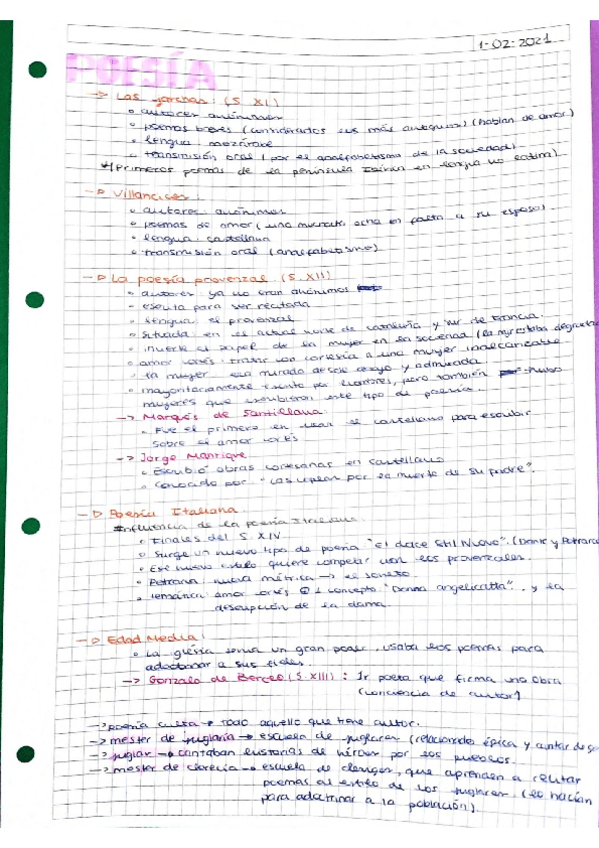 1-02-2021
POESÍA
→ Las jarchas: (S. XI)
• autores anónimos
• poemas breves (considerados los más antiguos) (hablan de amor)
• lengua mozárabe
• transmisión oral (por el analfabetismo de la sociedad)
*(Primeros poemas de la península en lengua no latina)
→ Villancicos:
• autores anónimos
• poemas de amor (una echa en falta a su esposo)
• lengua castellana
• transmisión oral (analfabetismo)
→ La poesía provenzal (S. XII)
• autores ya no eran anónimos
• escrita para ser recitada
• lengua: el provenzal
• situada en el actual norte de Cataluña y sur de Francia.
• invierte el papel de la mujer en la sociedad (la mujer estaba
• amor cortés: tratar con cortesía a una mujer inalcanzable
• la mujer era mirada desde abajo y admirada.
• mayoritariamente escrito por hombres, pero también hubo
mujeres que escribieron este tipo de poesía.
→ Marqués de Santillana:
• Fue el primero en usar el castellano para escribir
sobre el amor cortés
→ Jorge Manrique
• Escribió obras cortesanas en castellano
• conocido por "Las coplas por la muerte de su padre".
→ Poesía Italiana.
Influencia de la poesía Italiana
• Finales del S. XIV
• Surge un nuevo tipo de poesía "el dolce Stil Nuovo". (Dante y Petrarca
• Ese nuevo estilo quiere competir con los provenzales.
• Petrarca: nueva métrica → el soneto
• temática amor cortés concepto "Donna angelicatta".. y la
descripción de la dama.
→ Edad Media:
• La iglesia tenía un gran poder, usaba los poemas para
adoctrinar a sus fieles.
→ Gonzalo de Berceo (S. XIII): 1r poeta que firma una obra
(conciencia de autor)
→ poesía culta → todo aquello que tiene autor.
→ mester de juglaría → escuela de juglares (relacionado épica y cantar de
→ juglar → cantaban historias de héroes por los pueblos.
→ mester de clerecía → escuela de clérigos, que aprenden a recitar
poemas al estilo de los juglares. (lo hacían
para adoctrinar a la población).